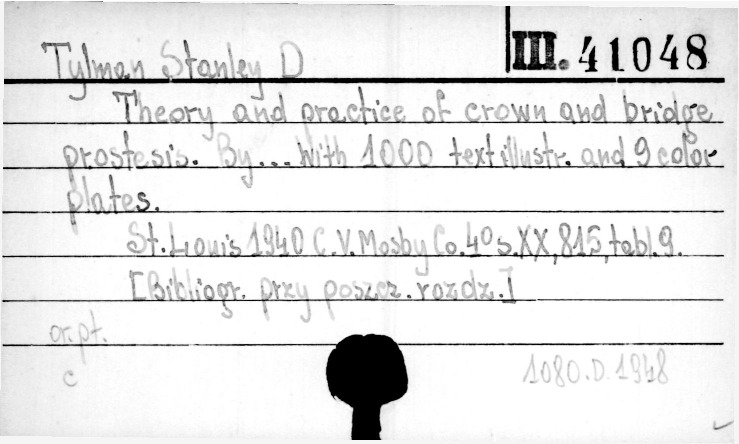 III. 41048
Tylman Stanley D
Theory and practice of crown and bridge
prostesis. By... With 1000 text illustr. and 9 color
plates.
St. Louis 1940 C.V. Mosby Co. 4° s. XX, 815, tabl. 9.
[Bibliogr. przy poszcz. rozdz.]
or. pt.
c
1080.D.1948